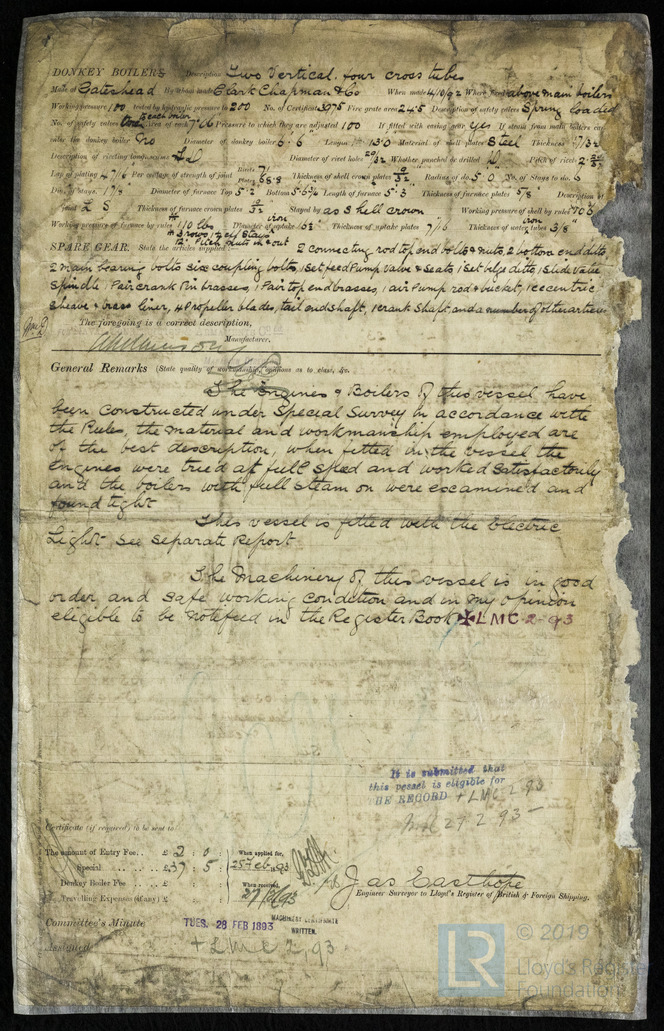 DONKEY BOILERS Description Two Vertical. four cross tubes
Made at Gateshead By whom made Clark Chapman & Co When made 4/10/92 Where fixed above main boilers
Working pressure 100 tested by hydraulic pressure to 200 No. of Certificate 3975 Fire grate area 24.5 Description of safety valves Spring loaded
No. of safety valves two each boiler Area of each 7.16 Pressure to which they are adjusted 100 If fitted with easing gear yes If steam from main boilers can
enter the donkey boiler No Diameter of donkey boiler 6'6" Length 13'0 Material of shell plates Steel Thickness 17/32
Description of riveting long. seams Diameter of rivet holes 29/32 Whether punched or drilled D. Pitch of rivets
Lap of plating 4 7/16 Per centage of strength of joint Rivets 71 Plates 68.8 Thickness of shell crown plates 9/32 Radius of do. 5'0 No. of Stays to do. 6
Dia. of stays. 1 7/8" Diameter of furnace Top 5'2 Bottom 5'6 3/4 Length of furnace 5'3" Thickness of furnace plates 5/8" Description of
joint L S Thickness of furnace crown plates 9/32 Stayed by as Shell crown Working pressure of shell by rules 103
Working pressure of furnace by rules 110 lbs Diameter of uptake Thickness of uptake plates 7/16 Thickness of water tubes 3/8"
12" Pitch nuts in & out
SPARE GEAR. State the articles supplied:— 2 connecting rod top end bolts & nuts, 2 bottom end ditto
2 main bearing bolts six coupling bolts, 1 Set feed Pump Valve & Seats 1 Set bilge ditto 1 Slide Valve
Spindle 1 Pair crank Pin brasses, 1 Pair top end brasses, 1 air Pump rod & bucket, 1 eccentric
Sheave & brass liner, 4 Propeller blades, tail end Shaft, 1 crank Shaft, and a number of other articles
The foregoing is a correct description,
Manufacturer.
General Remarks (State quality of workmanship, opinions as to class, &c.
The Engines & Boilers of this vessel have
been constructed under Special Survey in accordance with
the Rules, the material and workmanship employed are
of the best description, when fitted in the vessel the
Engines were tried at full speed and worked satisfactorily
and the boilers with full steam on were examined and
found tight
This vessel is fitted with the Electric
Light, see Separate Report
The Machinery of this vessel is in good
order and safe working condition and in my opinion
eligible to be notifeed in the Register Book ✠ LMC 2-93
It is submitted that
this vessel is eligible for
THE RECORD + LMC 2 93
27 2 93
Certificate (if required) to be sent to
The amount of Entry Fee.. £ 2 : 0 : When applied for,
Special .. .. .. £ 37 : 5 : 25 Feb 1893
Donkey Boiler Fee .. .. £ : : When received,
Travelling Expenses (if any) £ : : 27/2/93
Jas Easthope
Engineer Surveyor to Lloyd's Register of British & Foreign Shipping.
Committee's Minute TUES. 28 FEB 1893 MACHINERY CERTIFICATE
WRITTEN.
Assigned + LMC 2,93
LR © 2019
Lloyd's Register
Foundation